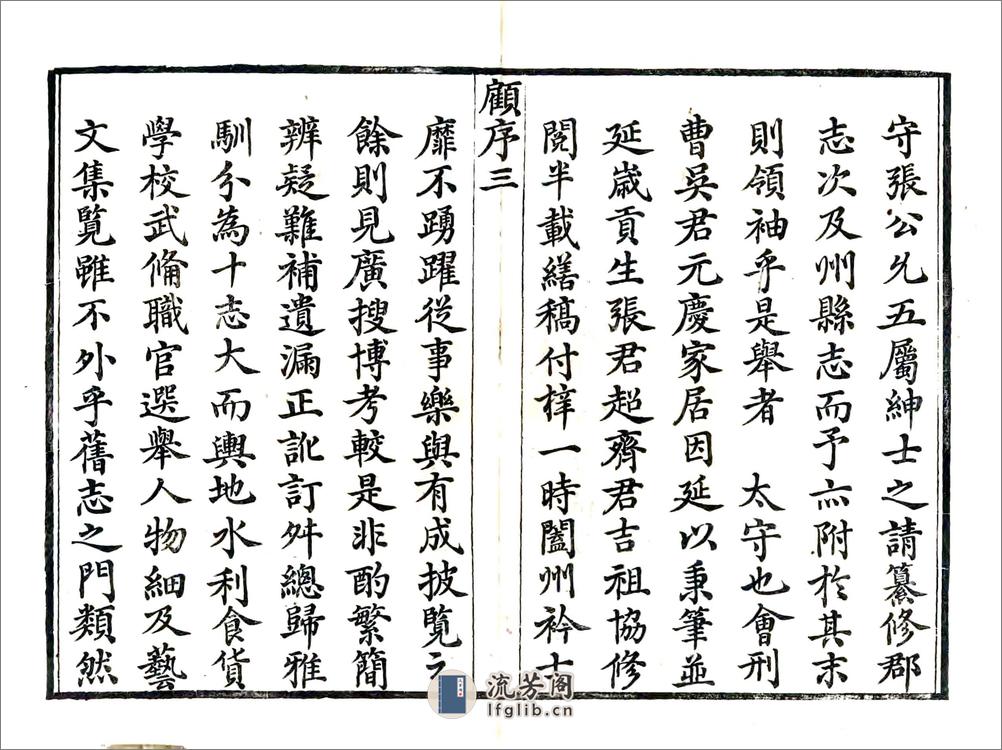 守張公允五屬紳士之請纂修郡
志次及州縣志而予亦附於其末
則領袖乎是舉者 太守也會刑
曹吳君元慶家居因延以秉筆並
延歲貢生張君超齊君吉祖協修
閱半載繕稿付梓一時闔州衿士
顧序三
靡不踴躍從事樂與有成披覽之
餘則見廣搜博考較是非酌繁簡
辨疑難補遺漏正訛訂舛總歸雅
馴分為十志大而輿地水利食貨
學校武備職官選舉人物細及藝
文集覽雖不外乎舊志之門類然
流芳阁
lfglib.cn